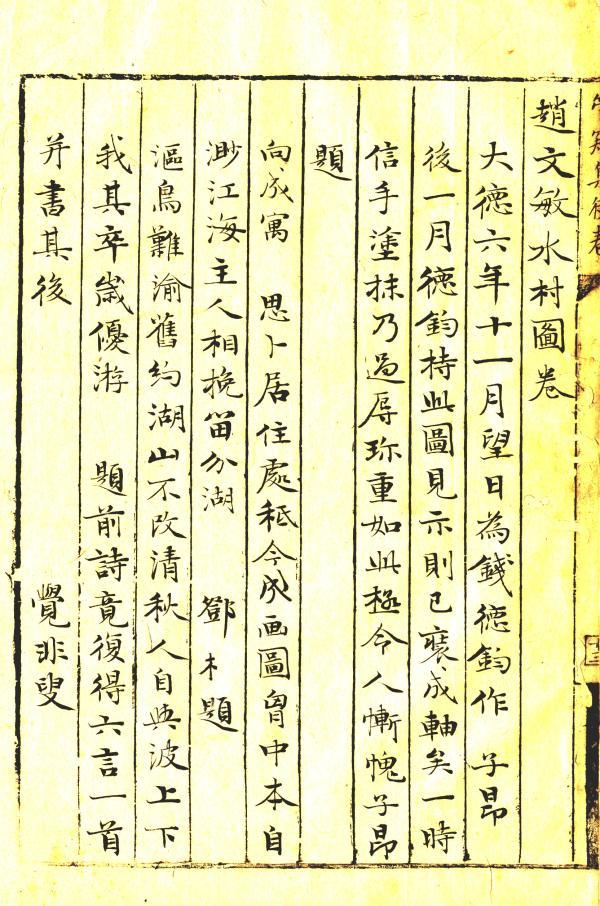 趙文敏水村圖卷
大德六年十一月望日為錢德鈞作　子昂
後一月德鈞持此圖見示則已裝成軸矣一時
信手塗抹乃過辱珎重如此極令人慚愧子昂
題
向成寓　思卜居住處秖今成画圖胷中本自
渺江海主人相挽留分湖　鄧木題
漚鳥難渝舊約湖山不改清秋人自與波上下
我其卒歲優游　題前詩竟復得六言一首
并書其後　覺非叟